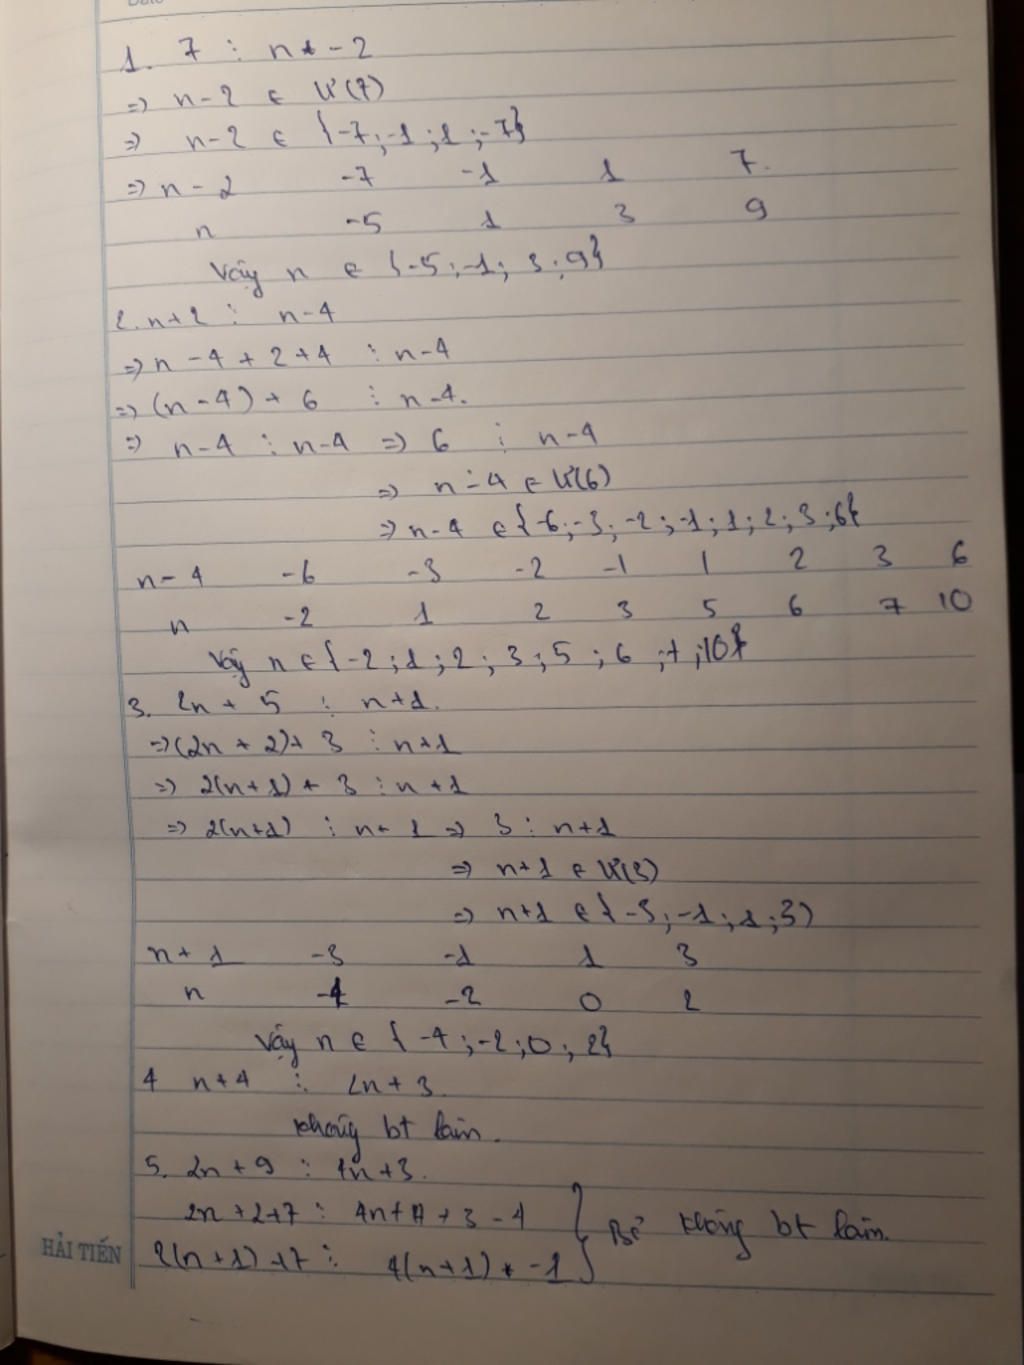 1. 7 ⋮ n - 2
=> n-2 ∈ Ư(7)
=> n-2 ∈ {-7;-1;1;-7}
=> n-2 -7 -1 1 7.
n -5 1 3 9
Vậy n ∈ {-5;-1; 3;9}
2. n+2 ⋮ n-4
=> n-4+2+4 ⋮ n-4
=> (n-4)+6 ⋮ n-4.
=> n-4 ⋮ n-4 => 6 ⋮ n-4
=> n-4 ∈ Ư(6)
=> n-4 ∈ {-6;-3;-2;-1;1;2;3;6}
n-4 -6 -3 -2 -1 1 2 3 6
n -2 1 2 3 5 6 7 10
Vậy n ∈ {-2;1;2;3;5;6;7;10}
3. 2n+5 ⋮ n+1.
=> (2n+2)+3 ⋮ n+1
=> 2(n+1)+3 ⋮ n+1
=> 2(n+1) ⋮ n+1 => 3 ⋮ n+1
=> n+1 ∈ Ư(3)
=> n+1 ∈ {-3;-1;1;3)
n+1 -3 -1 1 3
n -4 -2 0 2
Vậy n ∈ {-4;-2;0;2}
4 n+4 ⋮ 2n+3.
không bt làm.
5. 2n+9 ⋮ 4n+3.
2n+2+7 ⋮ 4n+4+3-4
2(n+1)+7 ⋮ 4(n+1)+-1 } Bé không bt làm.
HẢI TIẾN